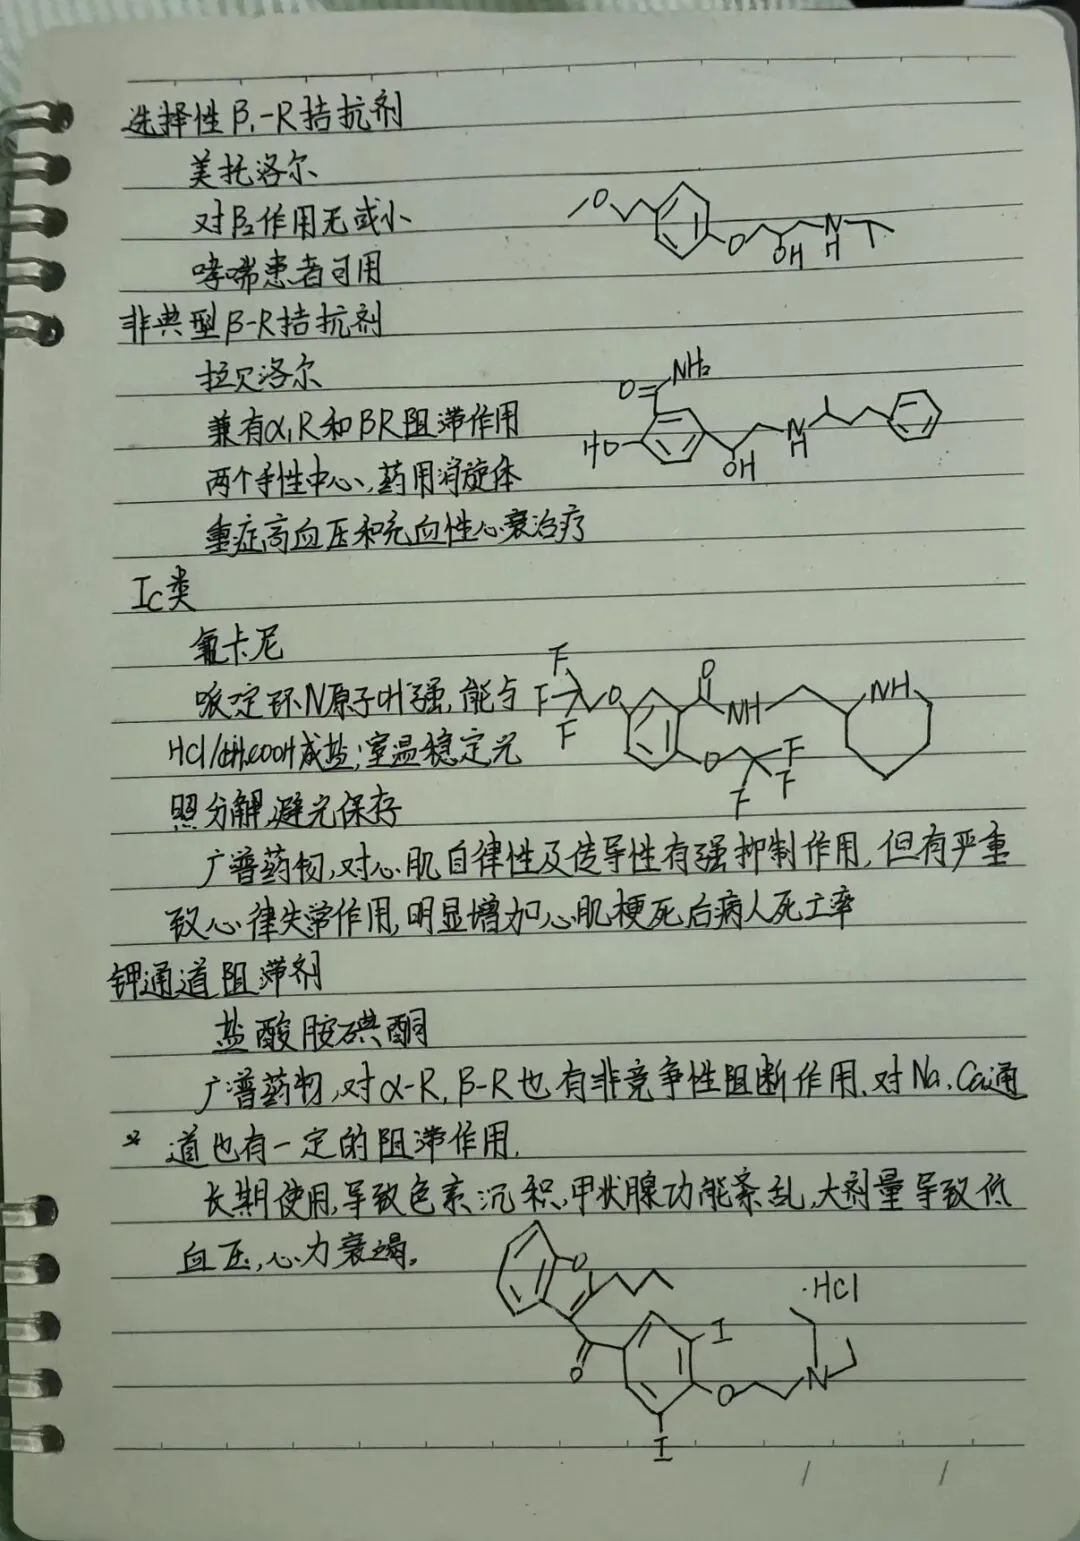 选择性β₁-R拮抗剂
美托洛尔
对β₂作用无或小
哮喘患者可用
O
O
OH
N
H
非典型β-R拮抗剂
拉贝洛尔
兼有α₁R和βR阻滞作用
两个手性中心,药用消旋体
重症高血压和充血性心衰治疗
O
NH₂
HO
OH
N
H
Ic类
氟卡尼
哌啶环N原子叶强,能与
HCl/CH₃COOH成盐;室温稳定光
照分解,避光保存
F
F
F
O
O
NH
NH
O
F
F
F
广普药物,对心肌自律性及传导性有强抑制作用,但有严重
致心律失常作用,明显增加心肌梗死后病人死亡率
钾通道阻滞剂
盐酸胺碘酮
广普药物,对α-R,β-R也有非竞争性阻断作用.对Na、Ca通
道也有一定的阻滞作用.
长期使用,导致色素沉积,甲状腺功能紊乱,大剂量导致低
血压,心力衰竭。
O
O
I
I
O
N
·HCl
/ /